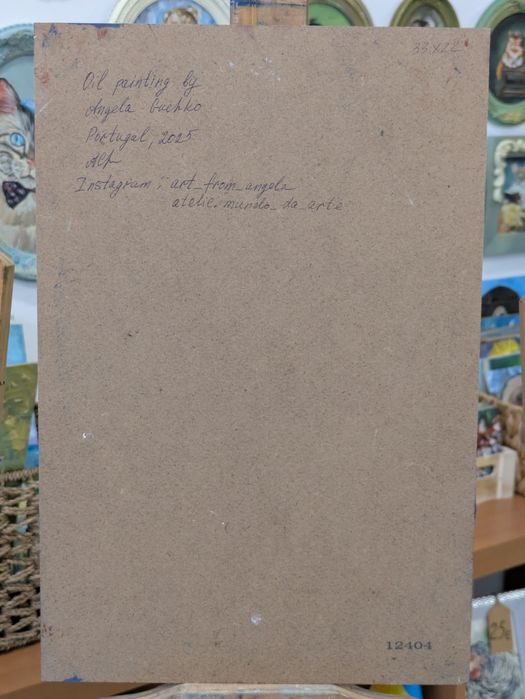 33x22
Oil painting by
Angela Guchko
Portugal, 2025
Instagram: art_from_angela
atelie.mundo_da_arte
12404
25€